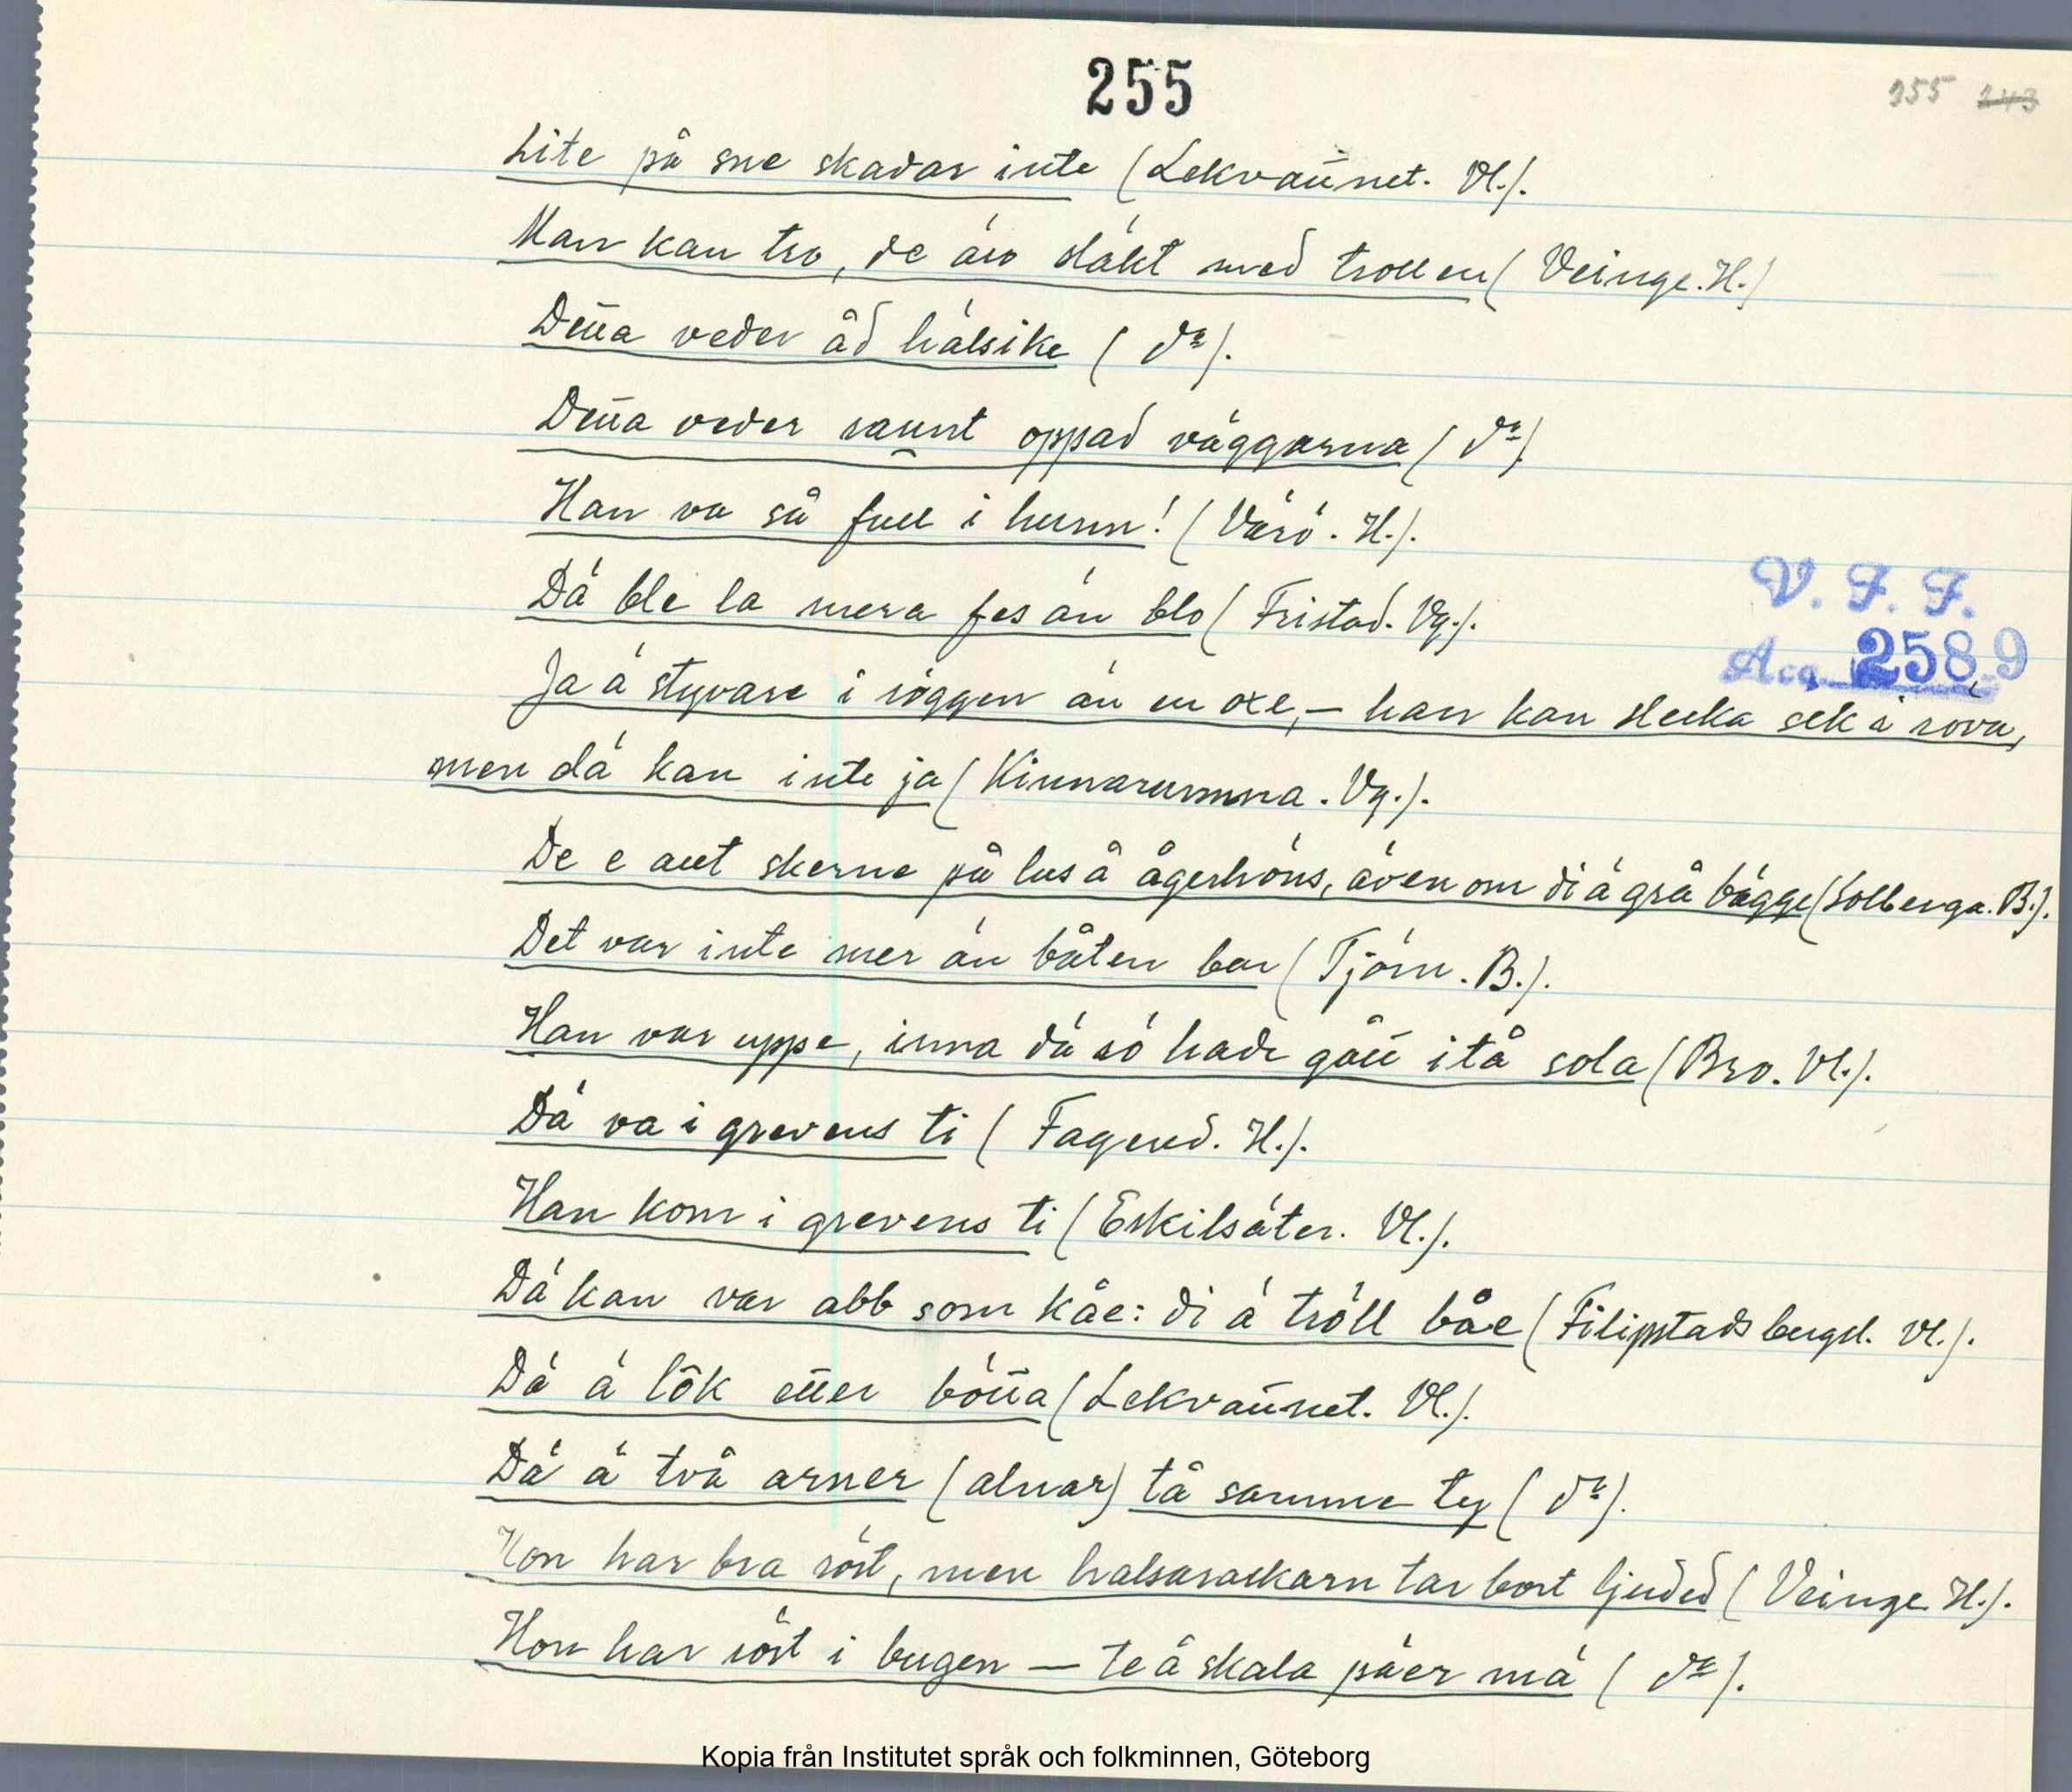 255
255 243
Lite på sne skadar inte (Lekvan̄net. Vl.).
Man kan tro, de äro släkt med trollen (Veinge. H.)
Den̄a veder åd hälsike (do).
Den̄a veder raunt oppad väggarna (do)
Han va så full i hunn! (Värö. H.).
Dä ble la mera fes än blo (Fristad. Vg.).
V. F. F.
Acc. 2589
Ja ä styvare i röggen än en oxe, – han kan slecka sek i röva,
men dä kan inte ja (Kinnarumma. Vg.).
De e aut skerne på lus å ågerhöns, även om di ä grå bägge (Solberga. B.).
Det var inte mer än båten bar (Tjörn. B.).
Han var uppe, inna dä sö hade gån̄ itå sola (Bro. Vl.).
Dä va i grevens ti (Fagered. H.).
Han kom i grevens ti (Eskilsäter. Vl.).
Dä kan var abb som kåe: di ä tröll båe (Filipstads bergsl. Vl.).
Dä ä lök et̄er böt̄a (Lekvan̄net. Vl.).
Dä ä två arner (alnar) tå samme ty (do).
Hon har bra röst, men halsasackarn tar bort ljuded (Veinge. H.).
Hon har röst i bugen – te å skala päer mä (do).
Kopia från Institutet språk och folkminnen, Göteborg